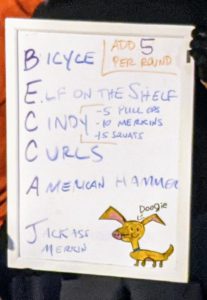 BICYCLE
ADD 5
PER ROUND
ELF ON THE SHELF
CINDY
-5 PULL UPS
-10 MERKINS
-15 SQUATS
CURLS
AMERICAN HAMMER
Doogie
JACKASS
MERKIN